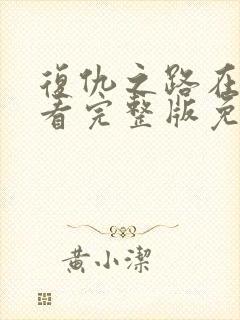 復仇之路在
看完整版免
黄小潔